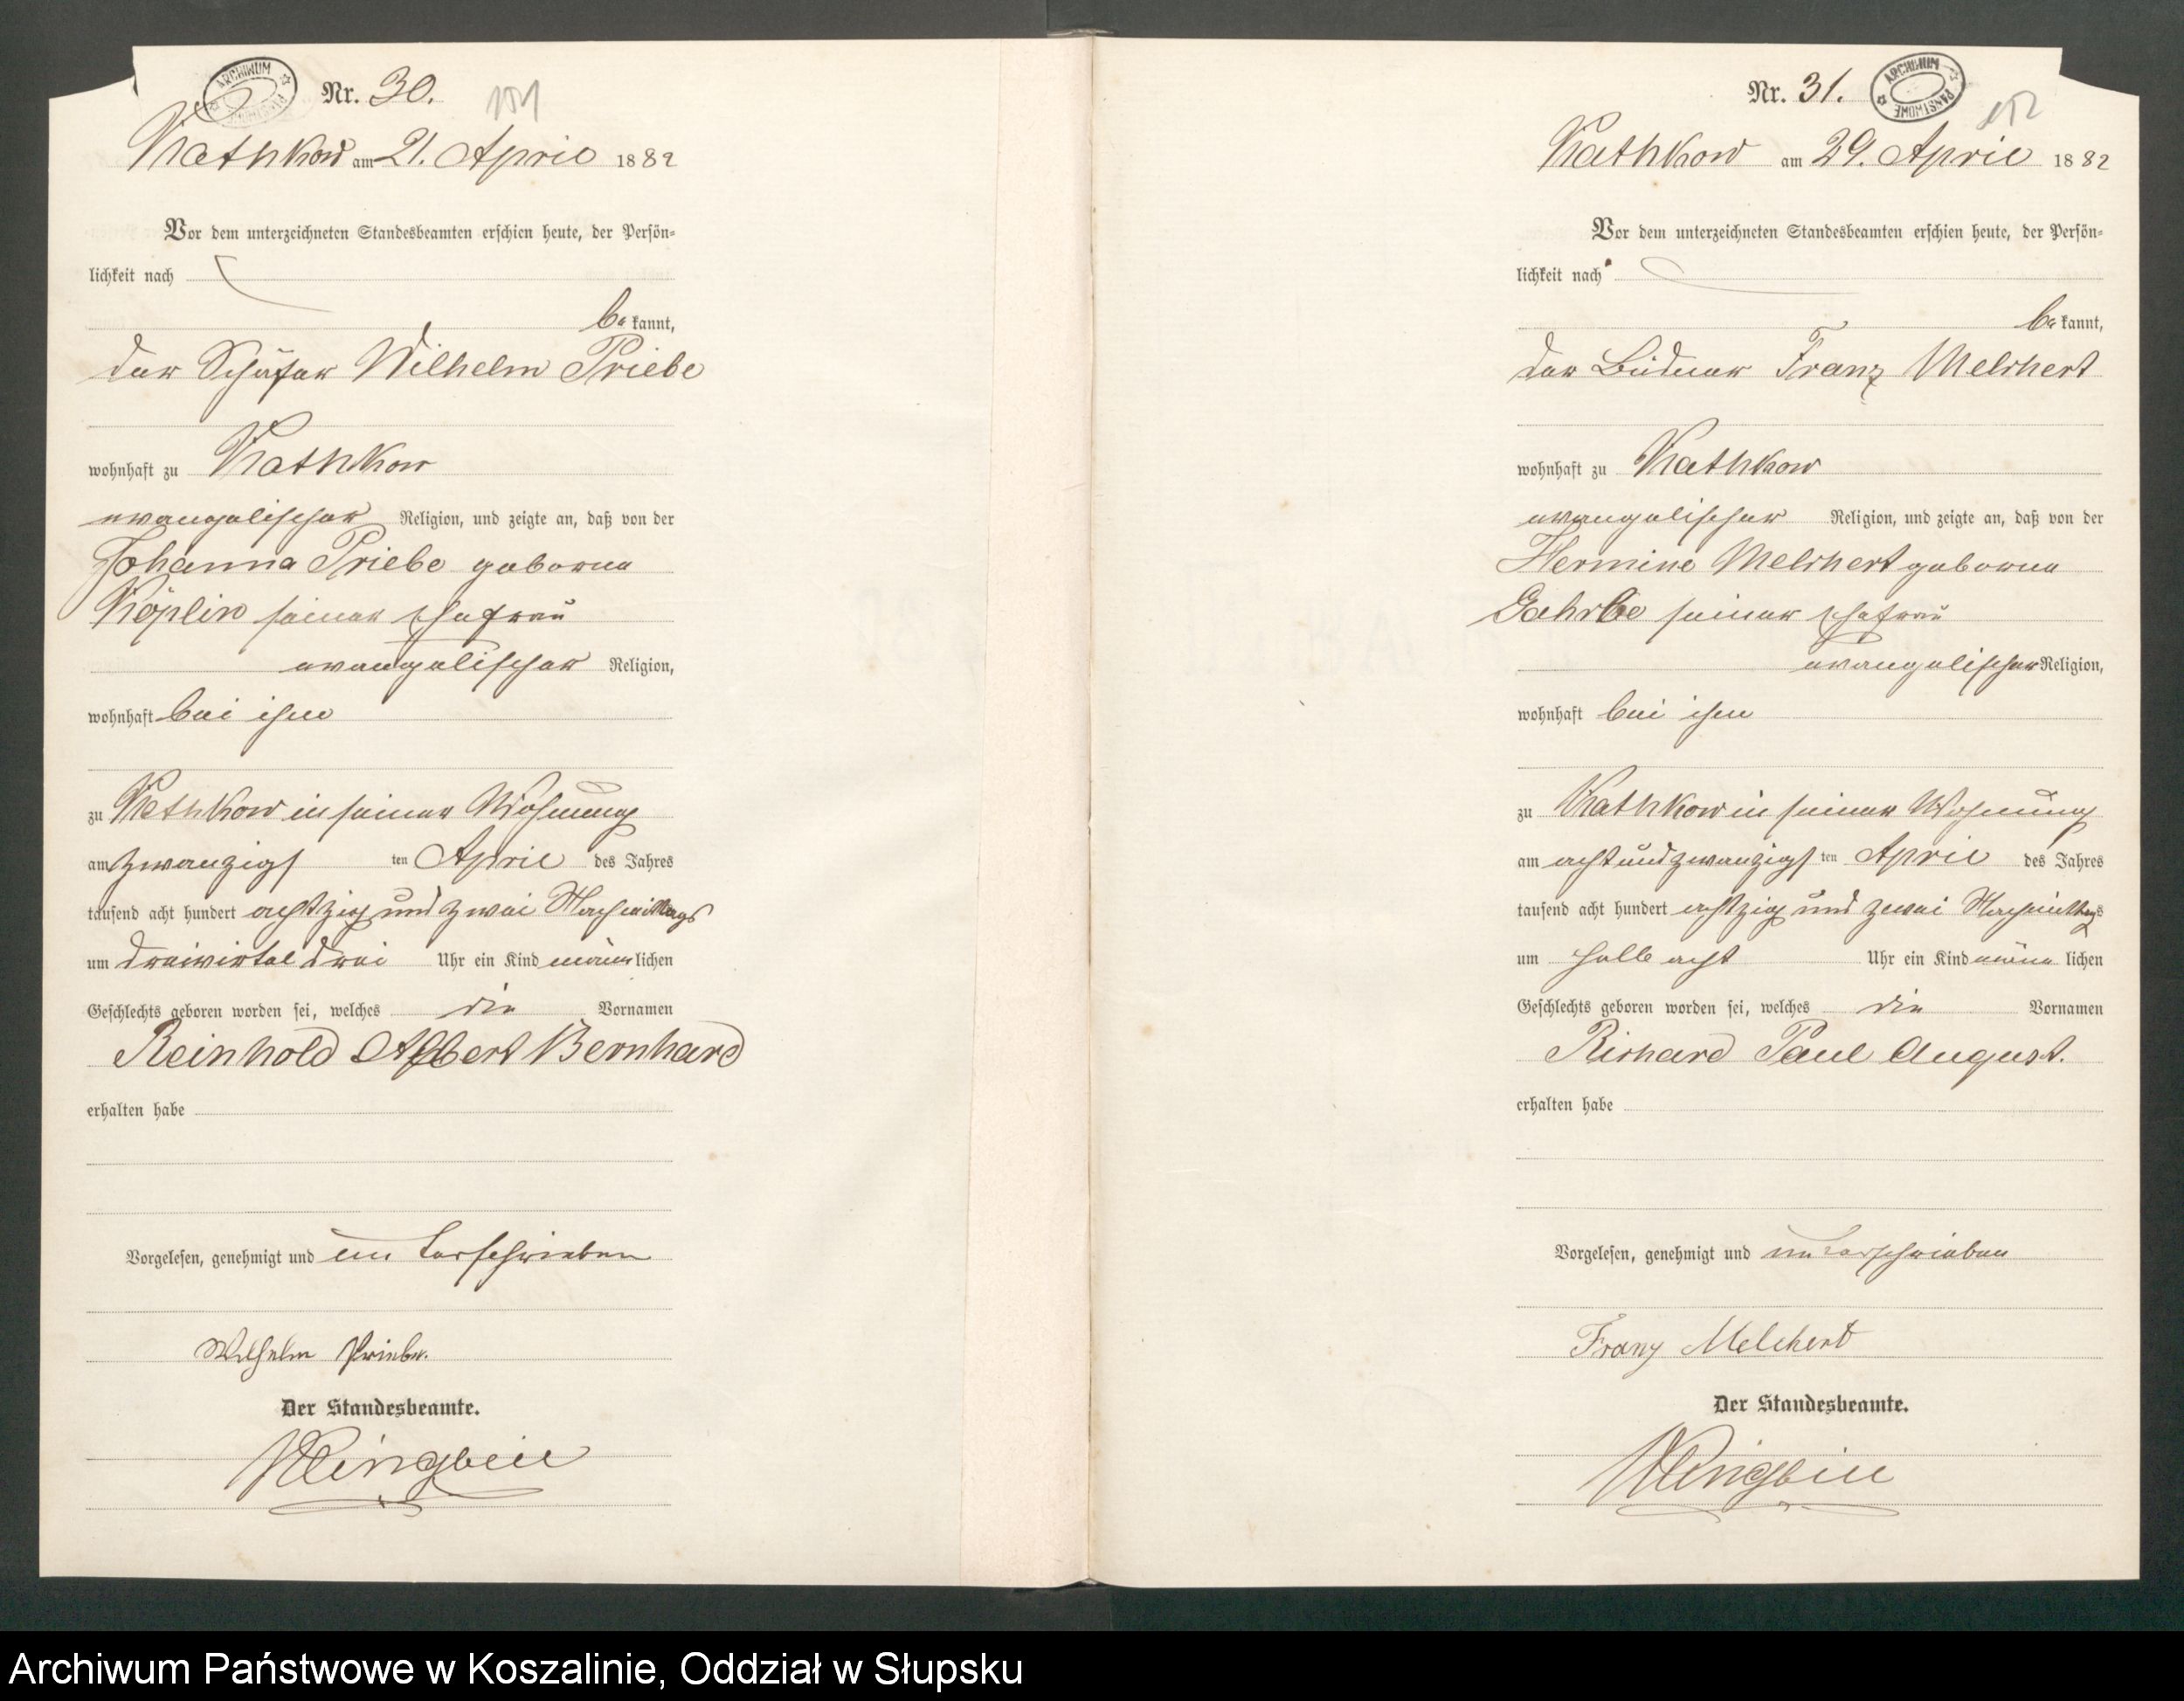 Nr. 30.
151
Kathkow am 21. April 1882
Vor dem unterzeichneten Standesbeamten erschien heute, der Persön-
lichkeit nach
be kannt,
der Schäfer Wilhelm Priebe
wohnhaft zu Kathkow
evangelischer Religion, und zeigte an, daß von der
Johanna Priebe geborne
Köplin seiner Ehefrau
evangelischer Religion,
wohnhaft bei ihm
zu Kathkow in seiner Wohnung
am zwanzigs ten April des Jahres
tausend acht hundert achtzig und zwei Nachmittags
um dreivirtel drei Uhr ein Kind männ lichen
Geschlechts geboren worden sei, welches die Vornamen
Reinhold Albert Bernhard
erhalten habe
Vorgelesen, genehmigt und unterschrieben
Wilhelm Priebe.
Der Standesbeamte.
ARCHIWUM
Nr. 31.
ARCHIWUM PAŃSTWOWE
152
Kathkow am 29. April 1882
Vor dem unterzeichneten Standesbeamten erschien heute, der Persön-
lichkeit nach
be kannt,
der Büdner Franz Melchert
wohnhaft zu Kathkow
evangelischer Religion, und zeigte an, daß von der
Hermine Melchert geborne
seiner Ehefrau
evangelischer Religion,
wohnhaft bei ihm
zu Kathkow in seiner Wohnung
am achtundzwanzigs ten April des Jahres
tausend acht hundert achtzig und zwei Nachmittags
um halb acht Uhr ein Kind männ lichen
Geschlechts geboren worden sei, welches die Vornamen
Richard Paul August.
erhalten habe
Vorgelesen, genehmigt und unterschrieben
Franz Melchert
Der Standesbeamte.
Archiwum Państwowe w Koszalinie, Oddział w Słupsku